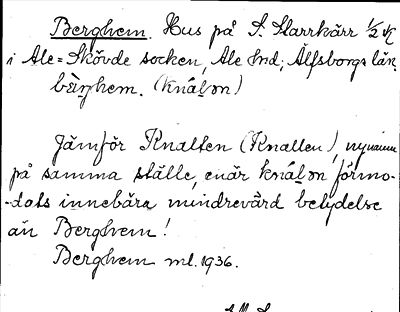 Berghem. Hus på S. Starrkärr 1/2 vk
i Ale=Skövde socken, Ale hd; Älfsborgs län.
bæ̀rjhem. (knálən)
Jämför Knalten (Knallen), nynamn
på samma ställe, enär knálən förmo-
-dats innebära mindrevärd betydelse
än Berghem!
Berghem ml. 1936.